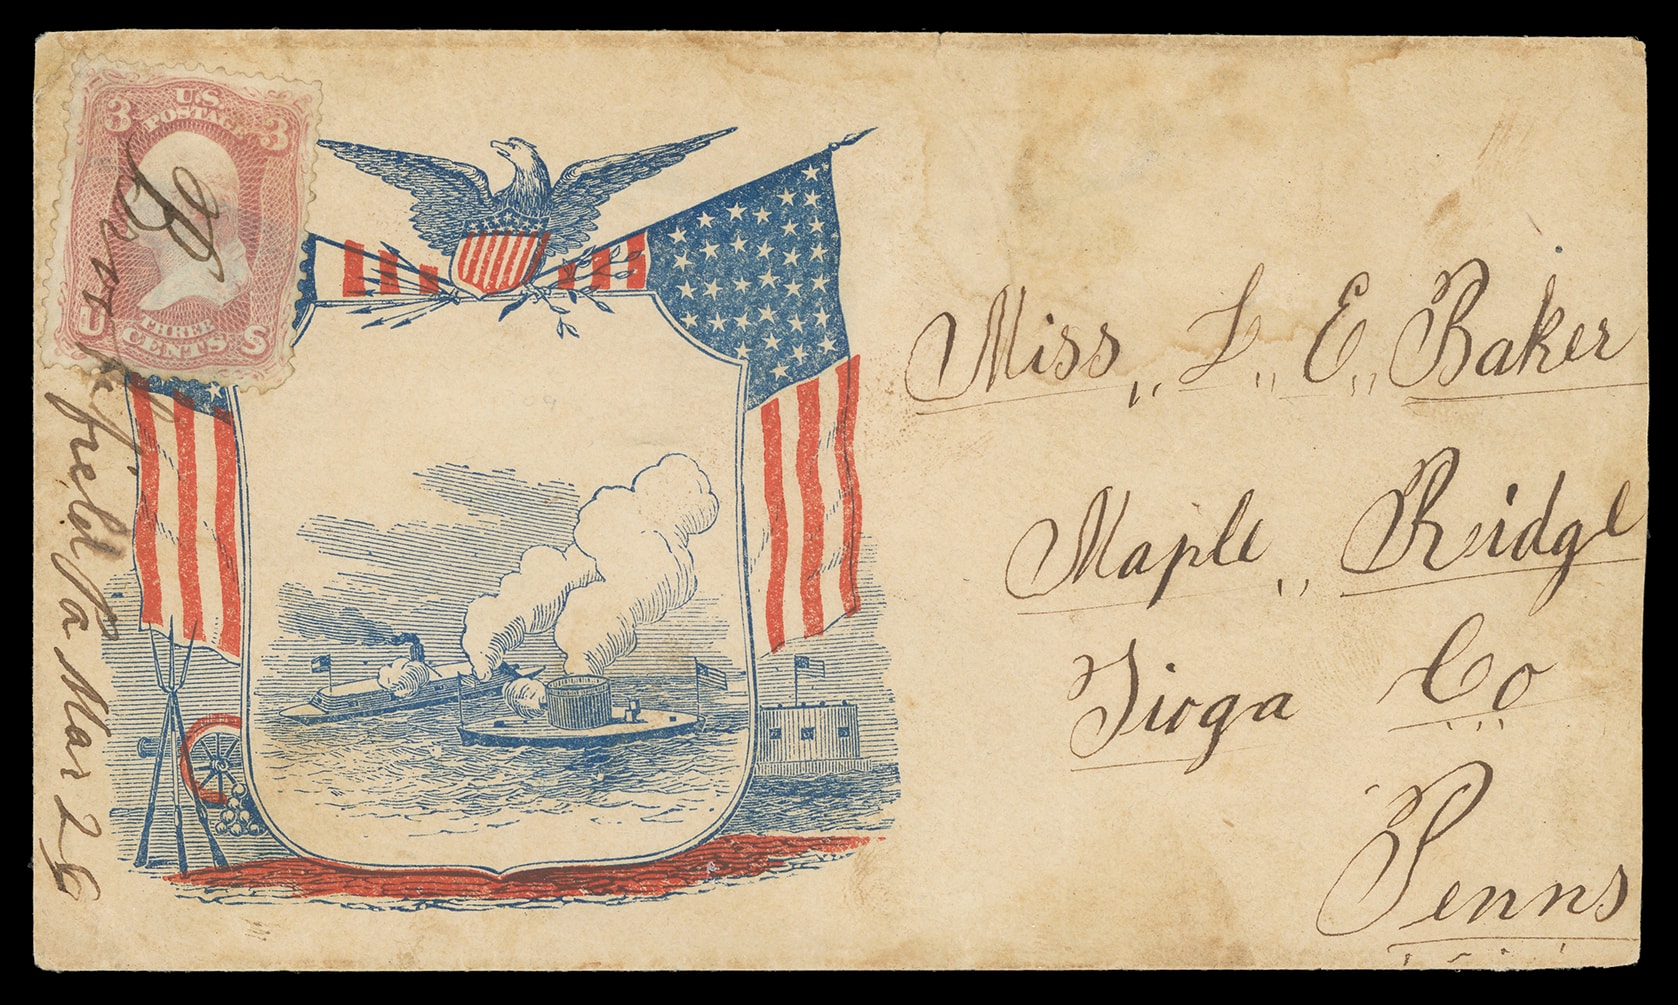 3 U.S. 3
POSTAGE
THREE
U CENTS S
Burtville Pa Mar 26
Miss,, L,, E,, Baker
Maple,, Ridge
Tioga Co
Penns